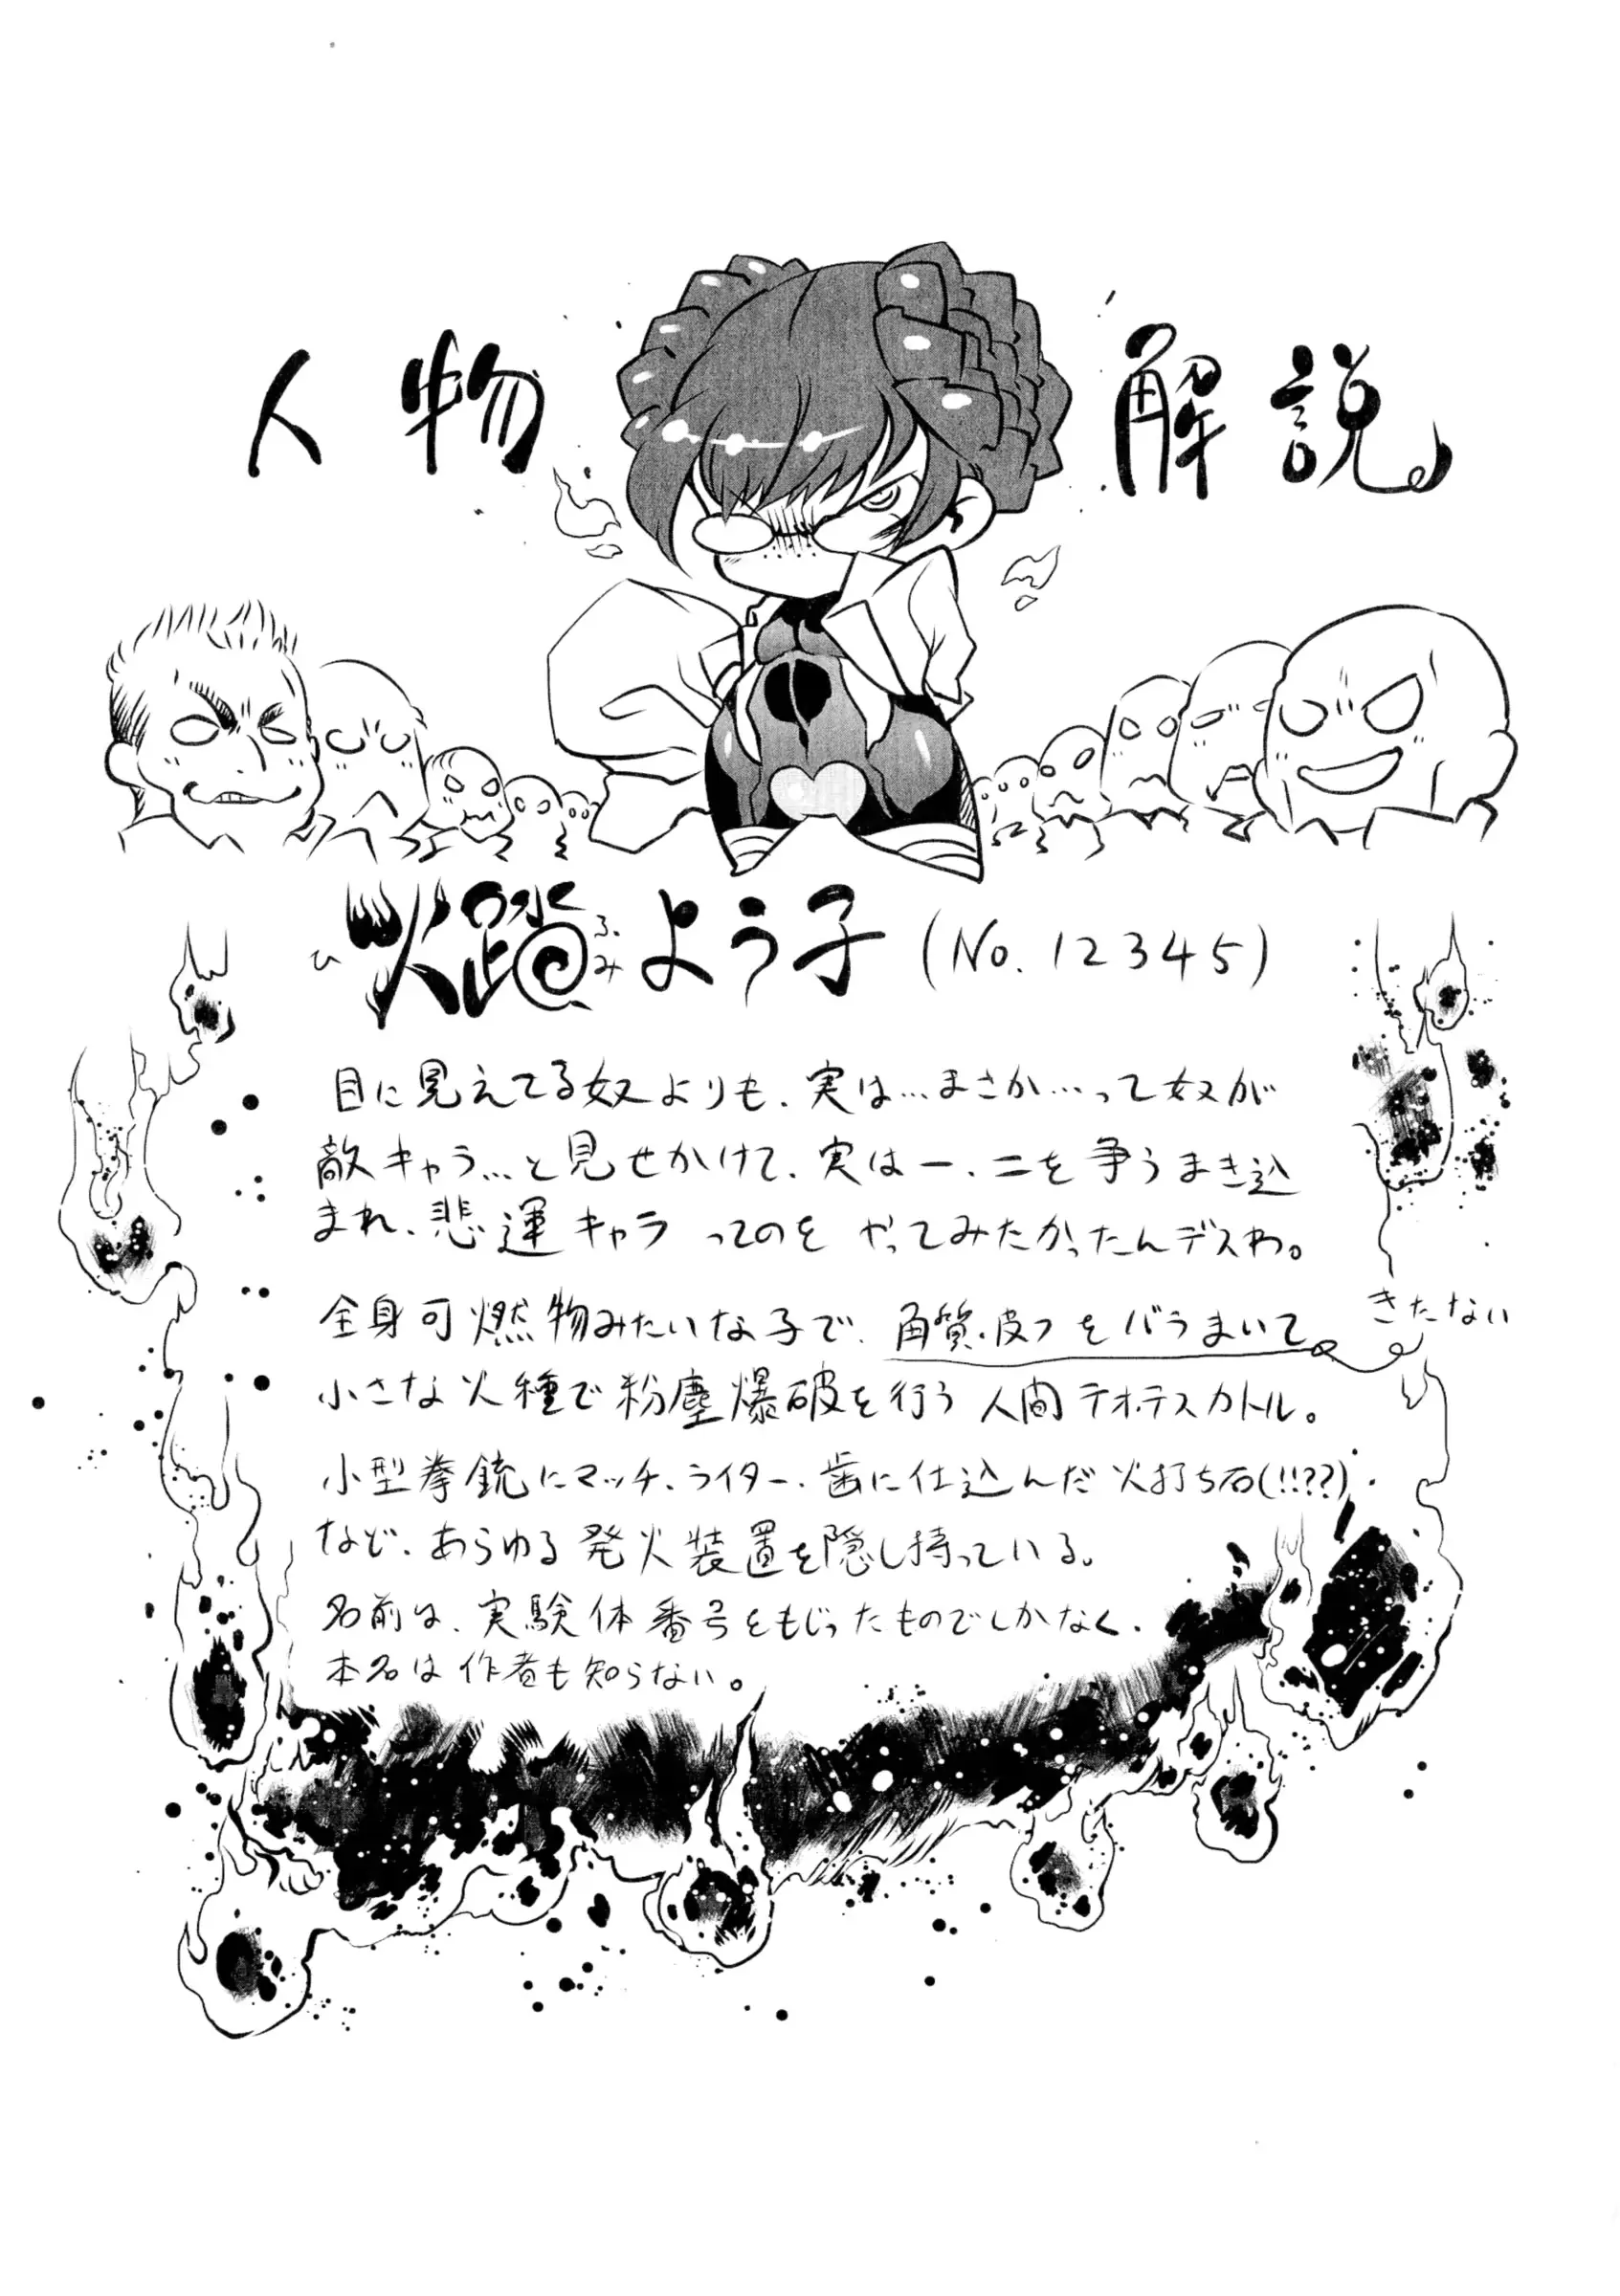 人物解説
火踏よう子 (No.12345)
ひ ふみ
目に見えてる奴よりも、実は…まさか…って奴が
敵キャラ…と見せかけて、実は一、二を争うまき込
まれ、悲運キャラってのをやってみたかったんデスわ。
全身可燃物みたいな子で、角質・皮フをバラまいて
きたない
小さな火種で粉塵爆破を行う人間テオ・テスカトル。
小型拳銃にマッチ、ライター、歯に仕込んだ火打ち石(!!??)、
など、あらゆる発火装置を隠し持っている。
名前は、実験体番号をもじったものでしかなく、
本名は作者も知らない。